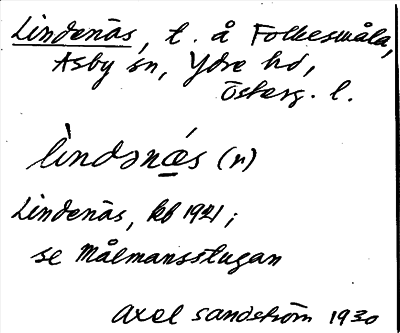 Lindenäs, t. å Folkesmåla,
Asby sn, Ydre hd,
Österg. l.
lìndənǽs (n)
Lindenäs, kb 1921;
se Målmansstugan
Axel Sandström 1930